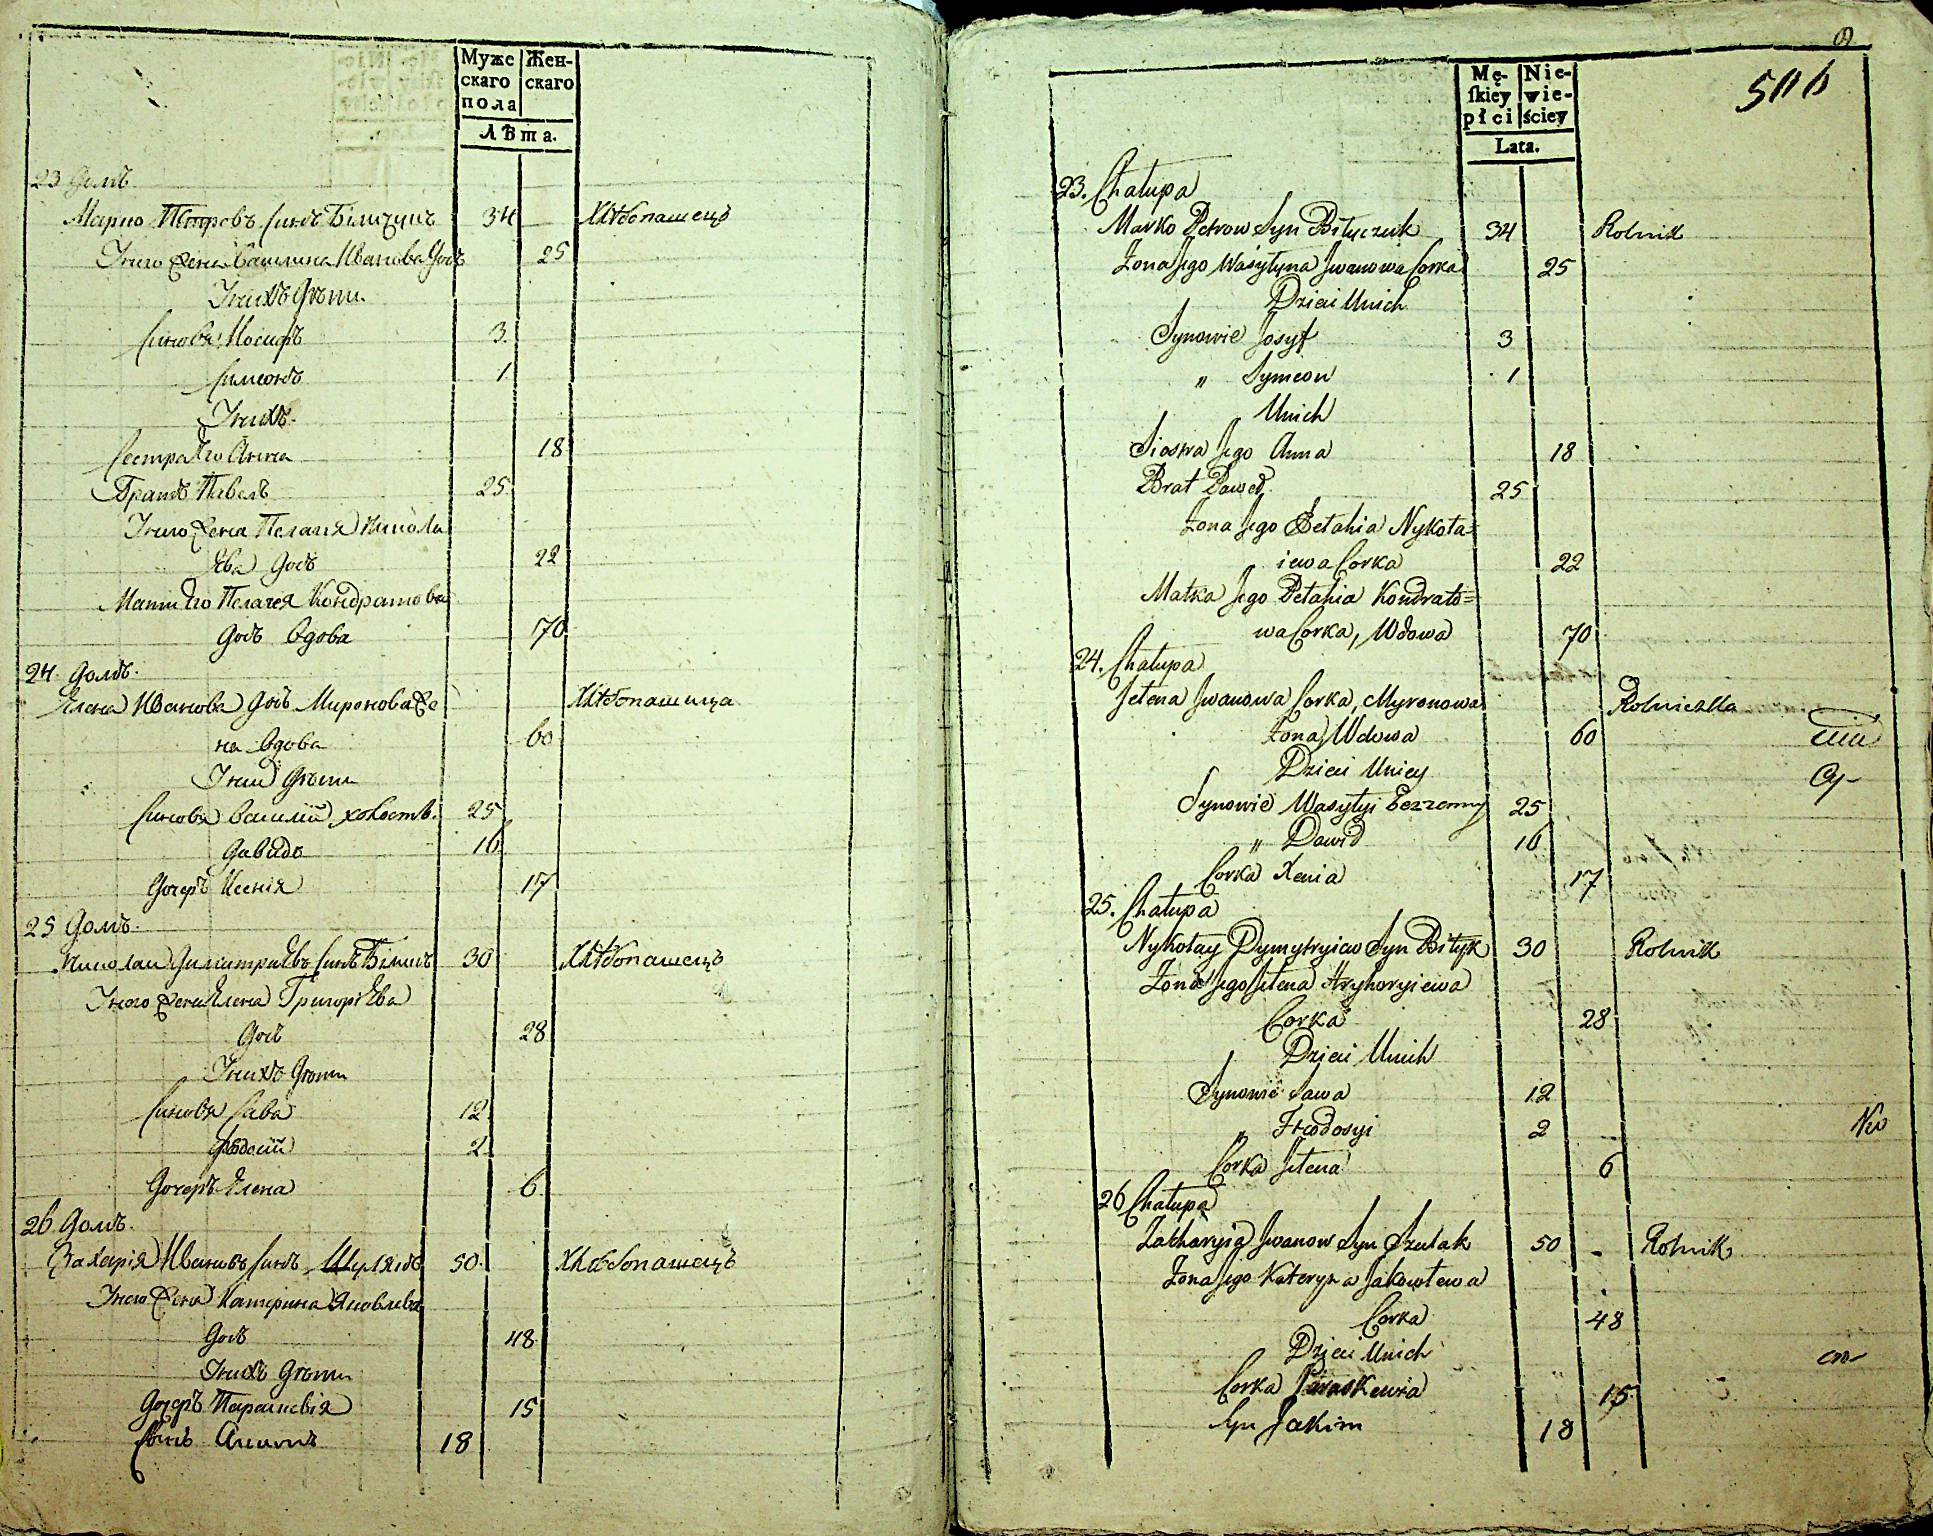 Муже
скаго
пола
Жен-
скаго
Лѣта.
23 Домъ
Марко Петровъ синъ Біличукъ 34 Хлѣбопашецъ
У него жена Василина Иванова Дочь 25
У них Дѣти
Синовя Иосифъ 3.
Симеонъ 1
У них
Сестра Его Анна 18
Братъ Павелъ 25.
У него жена Пелагия Никола
Ева Дочь 22
Мати Его Пелагея Кондратова
Дочь вдова 70
24. Домъ.
Елена Иванова Дочь Миронова Же
на вдова 60 Хлѣбопашица
У ней Дѣти
Синовя Василий холостъ. 25
Давидъ 16
Дочерь Ксения 17
25 Домъ.
Николай Димитриевъ синъ Биликъ 30 Хлѣбопашецъ
У него жена Елена Григориева
Дочь 28
У них Дѣти
Синовя Сава 12
Феодосий 2
Дочерь Елена 6
26 Домъ.
Захария Ивановъ синъ Шулякъ 50. Хлѣбопашецъ
У него жена Катерина Яковлева
Дочь 48
У них Дѣти
Дочерь Параскевія 15
Синъ Акимъ 18
Mę-
ſkiey
płci
Nie-
wie-
ściey
Lata.
23. Chałupa
Marko Petrow Syn Biłyczuk 34 Rolnik
Żona Jego Wasyłyna Jwanowa Corka 25
Dzieci Unich
Synowie Josyf 3
„ Symeon 1
Unich
Siostra Jego Anna 18
Brat Paweł 25
Żona Jego Pełahia Nykoła=
iewa Corka 22
Matka Jego Pełahia Kondrato=
wa Corka, Wdowa 70
24. Chałupa
Jełena Jwanowa Corka, Myronowa Rolniczka
Żona, Wdowa 60
Dzieci Uniey
Synowie Wasyłyi bezzenny 25
„ Dawid 16
Corka Xenia 17
25. Chałupa
Nykołay Dymytryiew Syn Biłyk 30 Rolnik
Żona Jego Jełena Hryhoryiewa
Corka 28
Dzieci Unich
Synowie Sawa 12
„ Fteodosyi 2
Corka Jełena 6
26 Chałupa
Zacharyia Jwanow Syn Szulak 50 Rolnik
Żona Jego Kateryna Jakowlewa
Corka 48
Dzieci Unich
Corka Paraskewia 15
Syn Jakim 18